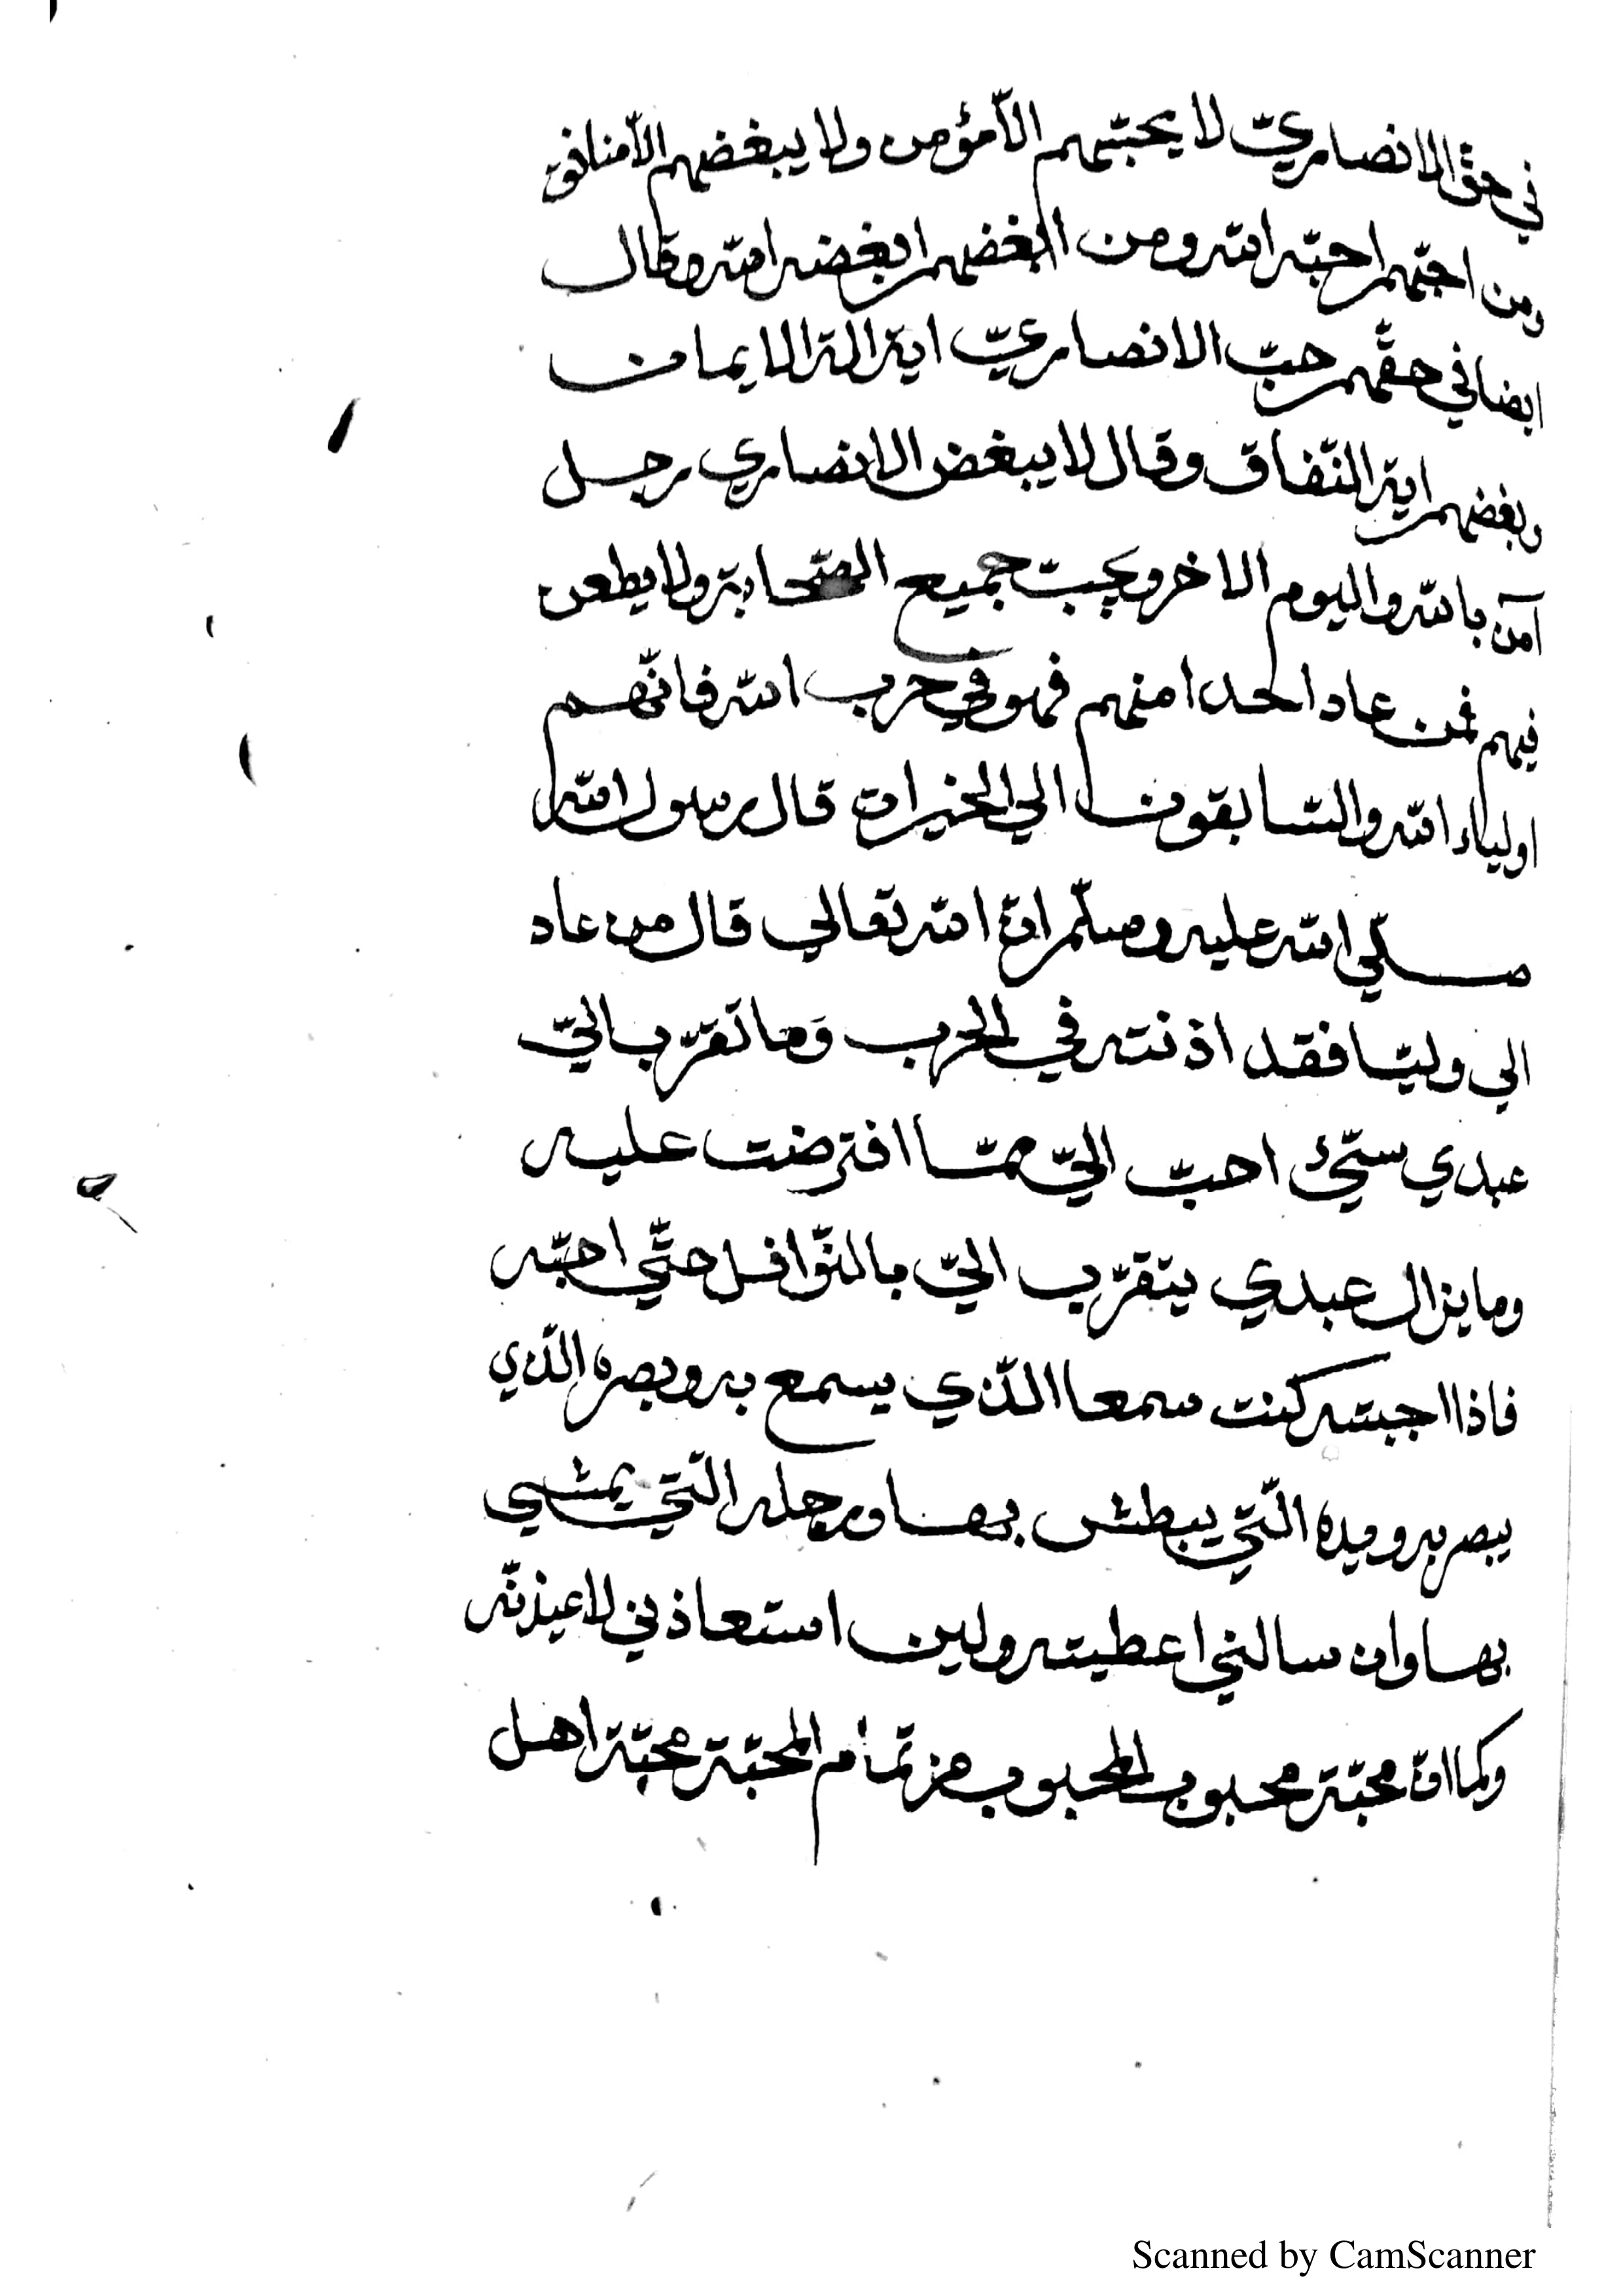 في حقّ الانصاريّ لا يحبّهم الّا مؤمن ولا يبغضهم الّا منافق
ومن احبّهم احبّه الله ومن ابغضهم ابغضه الله وقال
ايضا في حقّهم حبّ الانصاريّ اية الة الايمان
وبغضهم اية النّفاق وقال لا يبغض الانصاري رجل
آمن بالله واليوم الاخر ويحبّ جميع الصّحابة ولا يطعن
فيهم فمن عاد احدا منهم فهو في حرب الله فانّهم
اولياء الله والسّابقون الي الخيرات قال رسول الله
صلّي الله عليه وسلّم انّ الله تعالي قال من عاد
الي وليّا فقد اذنته في الحرب وما تقرّب اليّ
عبدي بشيء احبّ اليّ ممّا افترضت عليه
وما يزال عبدي يتقرّب اليّ بالنّوافل حتّي احبّه
فاذا احببته كنت سمعا الّذي يسمع به وبصره الّذي
يبصر به ويده الّتي يبطش بها ورجله الّتي يمشي
بها وان سالني اعطيته ولين استعاذني لاعيذنّه
وكما انّ محبّة محبوب المحبوب من تمام المحبّة محبّة اهل
Scanned by CamScanner